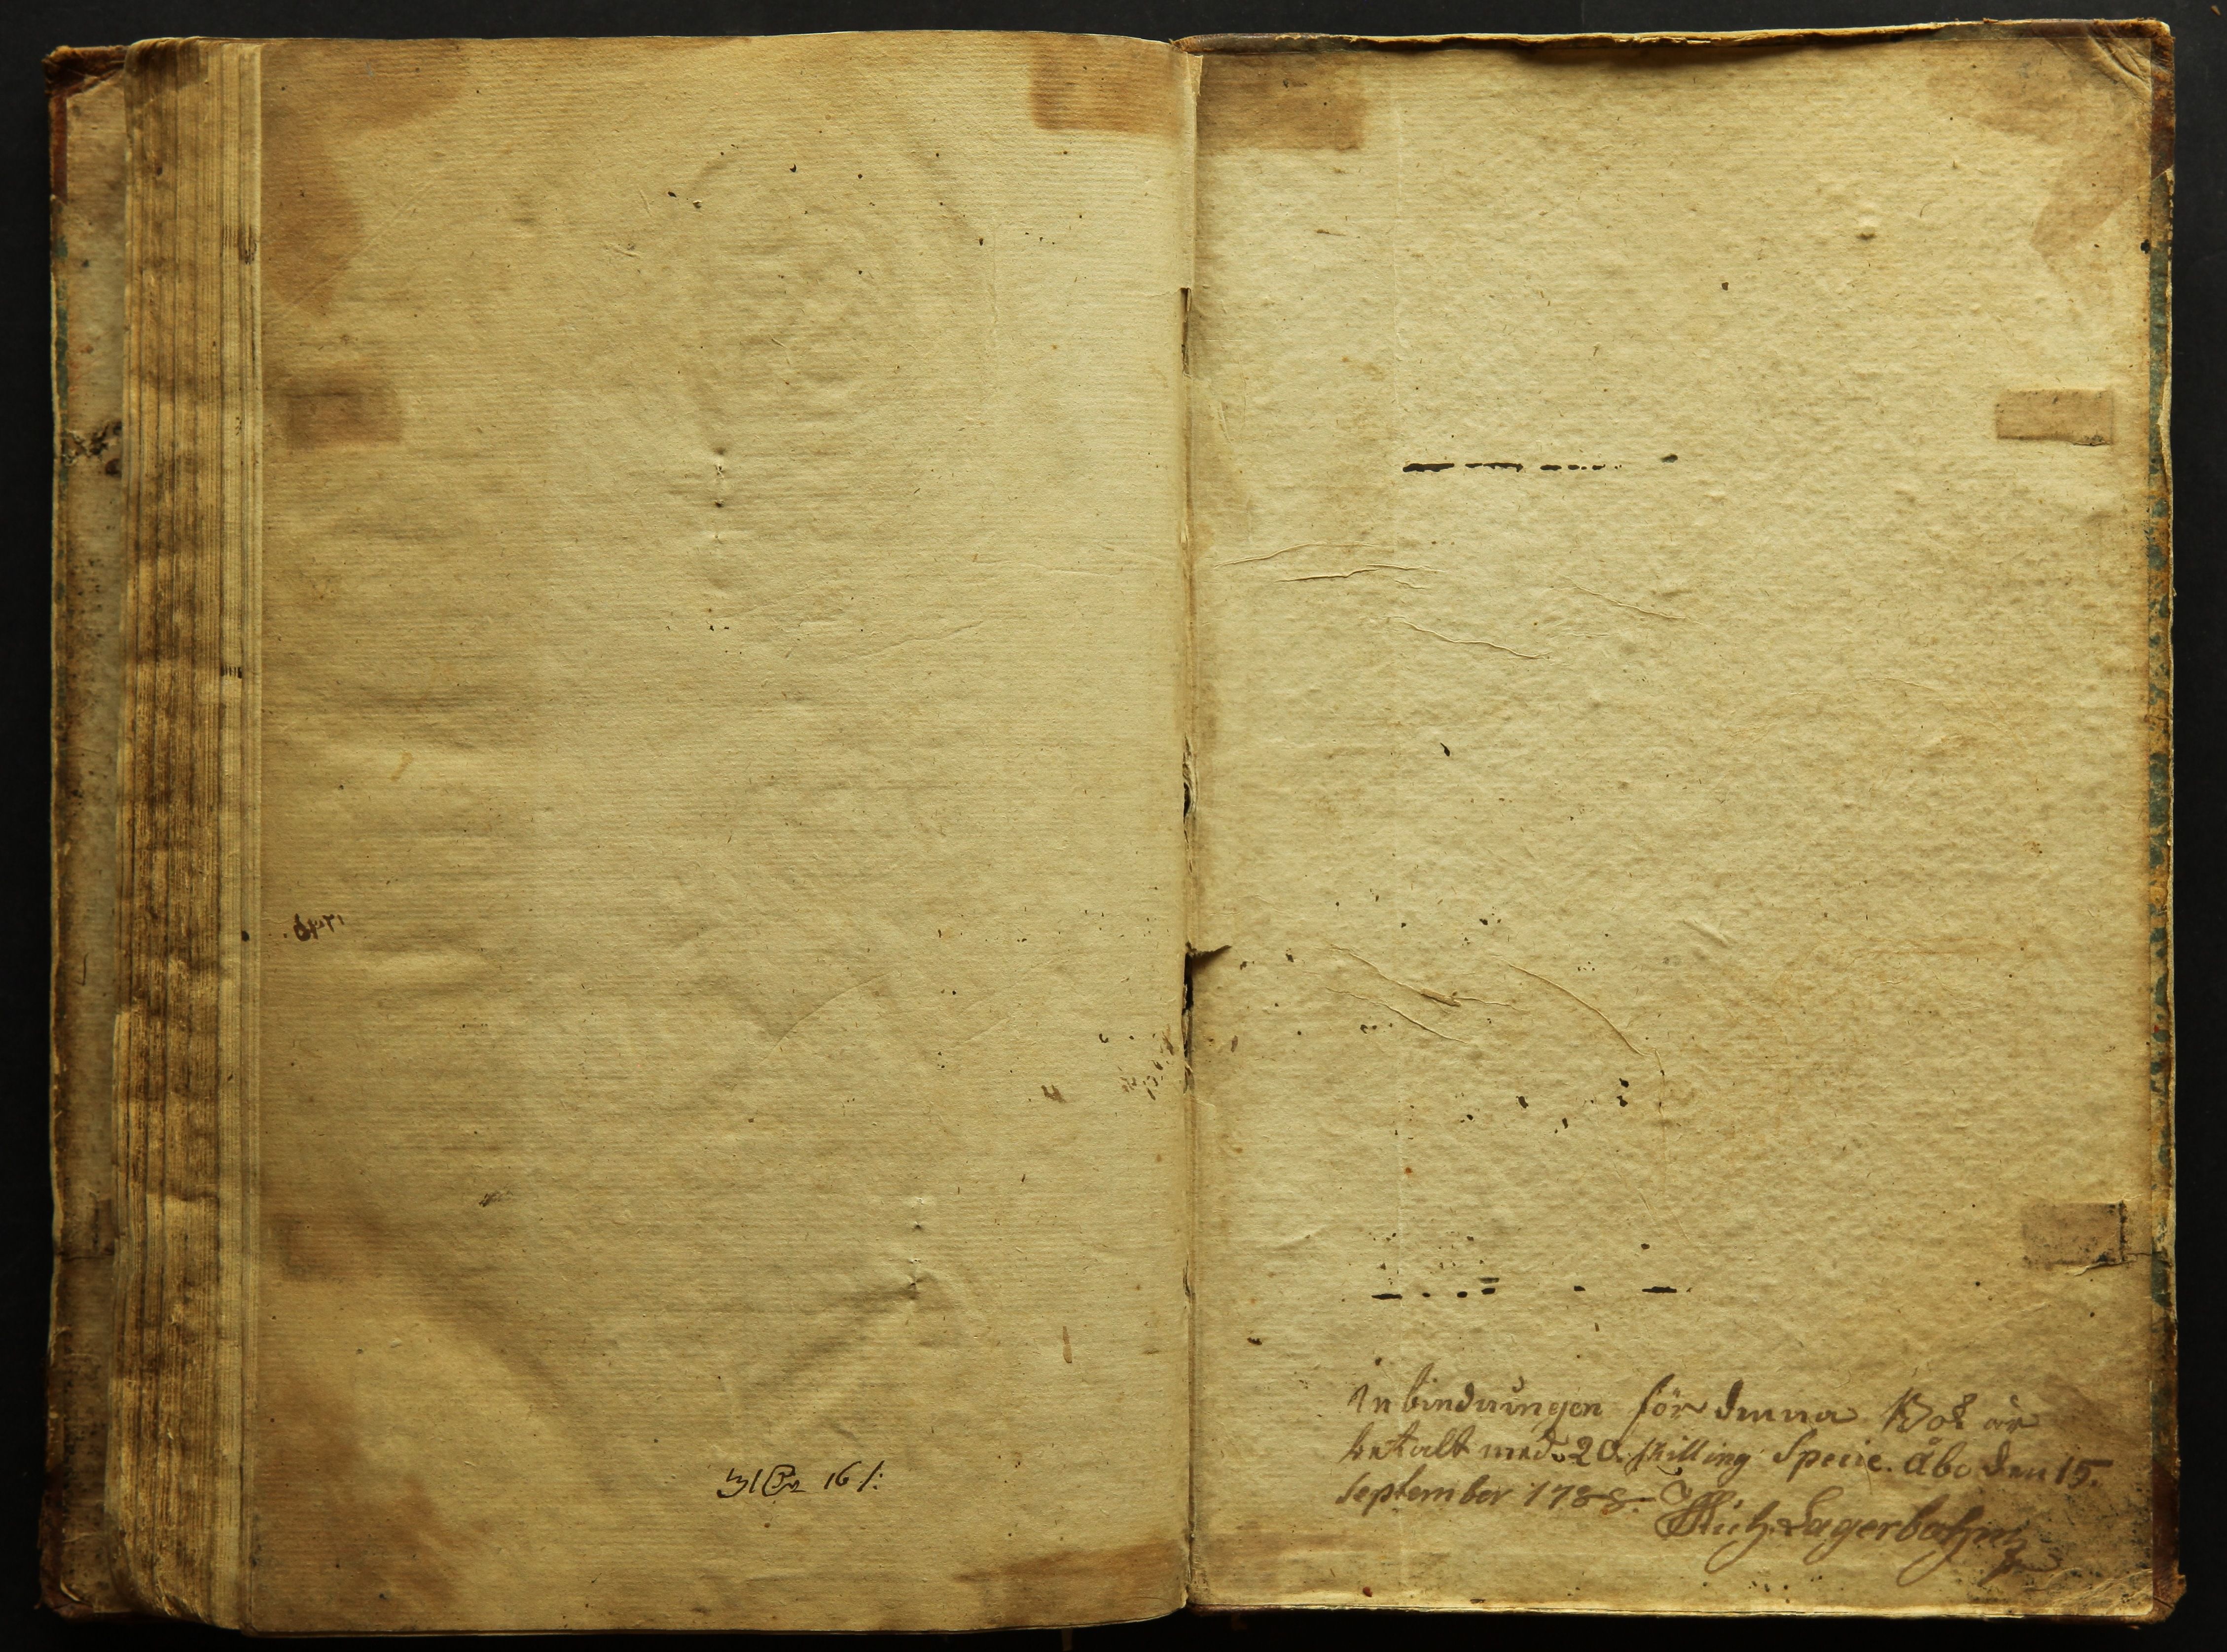 16 /:
Inbindningen för denna Bok är
betalt med 20. skilling Specie. Åbo den 15.
September 1788.
Mich. Lagerbohm